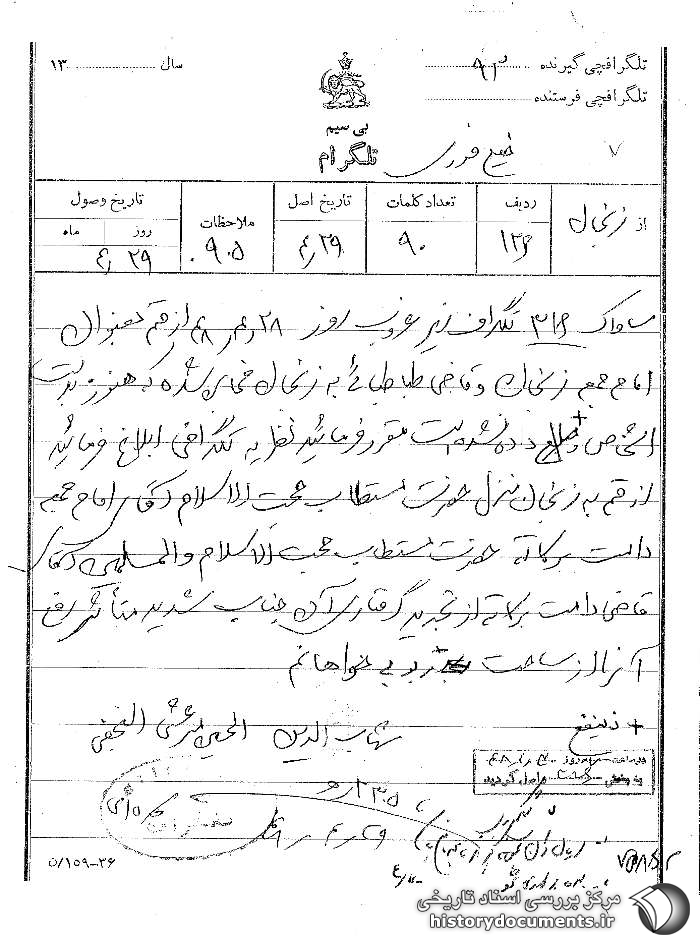 تلگرافچی گیرنده ۹۳
سال ۱۳
تلگرافچی فرستنده
بی سیم
تلگرام
خیلی فوری
۷
از زنجان
ردیف ۱۲۴
تعداد کلمات ۹۰
تاریخ اصل ۴٫۲۹
ملاحظات ۹۰۵
تاریخ وصول
روز ماه
۴٫۲۹
ساواک ۳۱۶ تلگراف زیر غروب روز ۲۸ از قم بعنوان
امام جمعه زنجان و قاضی طباطبائی به زنجان مخابره شده که هنوز بدست
اشخاص + داده نشده است مقرر فرمائید نظریه تلگرافی ابلاغ فرمائید
از قم به زنجان منزل حضرت مستطاب حجت الاسلام آقای امام جمعه
دامت برکاته حضرت مستطاب حجت الاسلام والمسلمین آقای
قاضی دامت برکاته از تجدید گرفتاری آن جناب شدید متأثر رفع
آنرا از ساحت ربوبی خواهانم
+ ذینفع
شهاب الدین الحسینی المرعشی النجفی
واصل گردید
۵/۱۵۹-۲۶
مرکز بررسی اسناد تاریخی
historydocuments.ir